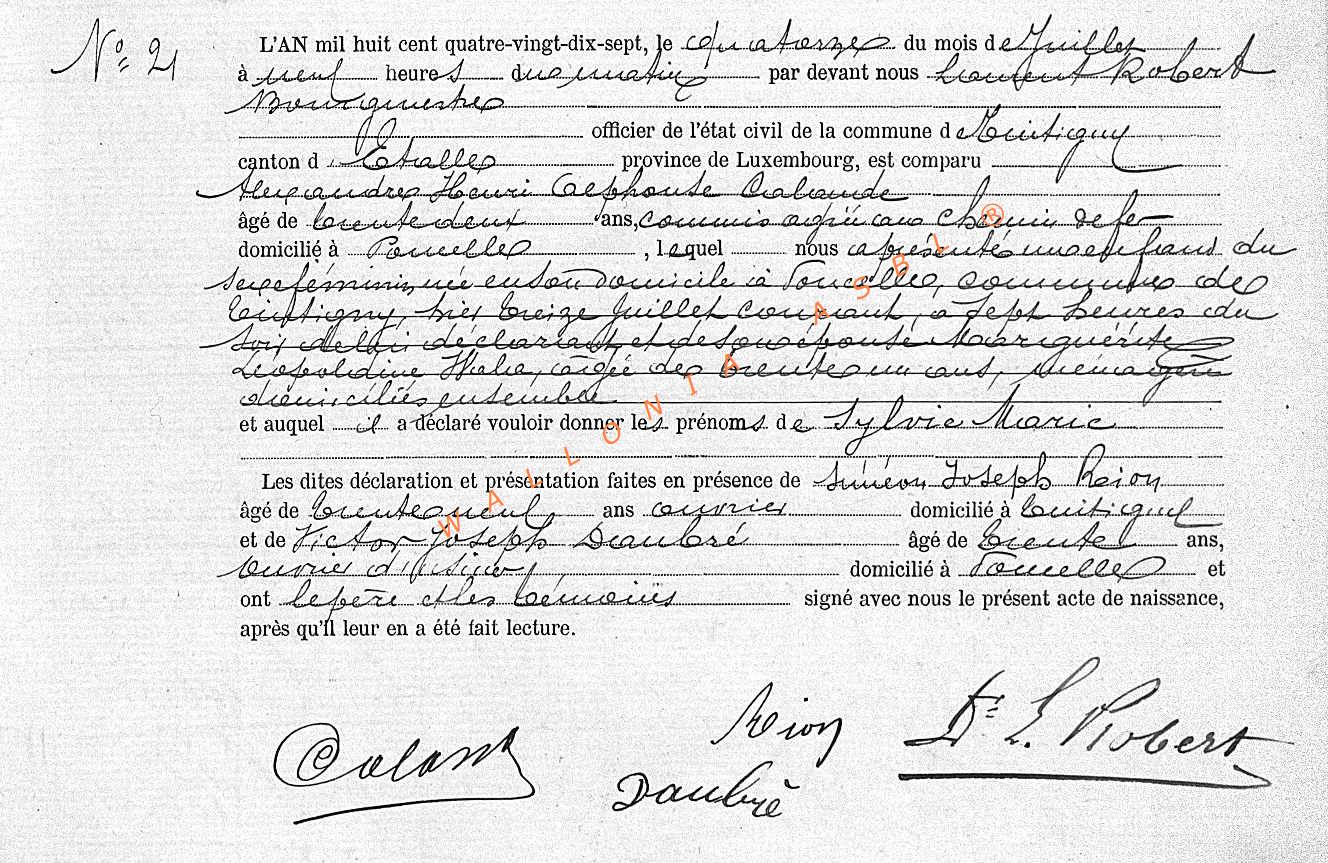 N° 21
L'AN mil huit cent quatre-vingt-dix-sept, le quatorze du mois de Juillet
à neuf heures du matin par devant nous Laurent Robert
Bourgmestre
officier de l'état civil de la commune de Tintigny
canton d'Etalle province de Luxembourg, est comparu
Alexandre Henri Alphonse Calande
âgé de trente deux ans, commis agréé au chemin de fer
domicilié à Poncelle, lequel nous a présenté un enfant du
sexe féminin née en son domicile à Poncelle, commune de
Tintigny, hier treize Juillet courant, à sept heures du
soir de lui déclarant et de son épouse Marguérite
Léopoldine Waha, âgée de trente un ans, ménagère
domiciliés ensemble
et auquel il a déclaré vouloir donner les prénoms de Sylvie Marie
Les dites déclaration et présentation faites en présence de Siméon Joseph Rion
âgé de trente neuf ans ouvrier domicilié à Tintigny
et de Victor Joseph Daubré âgé de trente ans,
ouvrier d'usine domicilié à Poncelle et
ont le père et les témoins signé avec nous le présent acte de naissance,
après qu'il leur en a été fait lecture.
WALLONIA ASBL ®
Rion
Dr L. Robert
Daubré